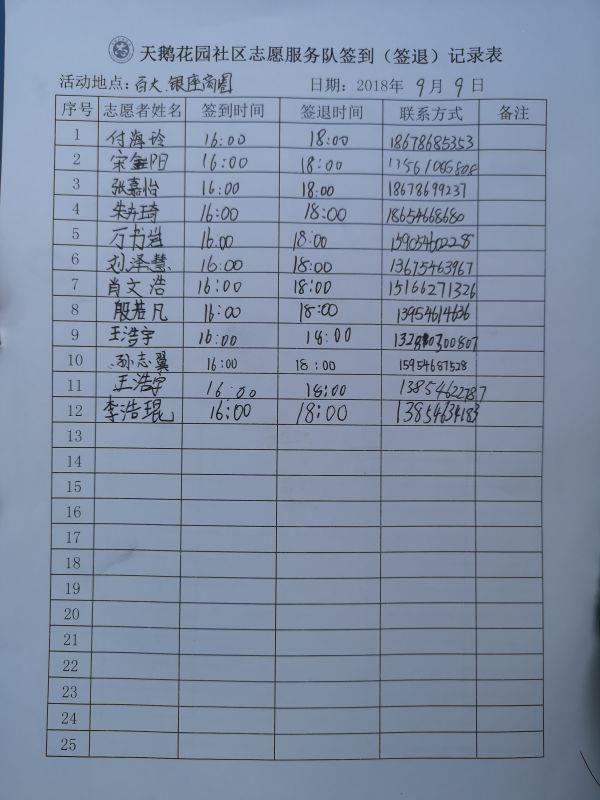 天鹅花园社区志愿服务队签到（签退）记录表
活动地点：百大.银座商圈 日期：2018年 9月 9日
序号 志愿者姓名 签到时间 签退时间 联系方式 备注
1 付海玲 16:00 18:00 18678685353
2 宋金阳 16:00 18:00
3 张嘉怡 16:00 18:00 18678699237
4 朱卉琦 16:00 18:00 18654668680
5 万书 16:00 18:00 159054602228
6 刘泽慧 16:00 18:00 13675463967
7 肖文浩 16:00 18:00 15166271326
8 殷若凡 16:00 18:00 13954614636
9 王浩宇 16:00 18:00
10 孙志翼 16:00 18:00 15954687528
11 王浩宇 16:00 18:00
12 李浩琨 16:00 18:00 13854634183
13
14
15
16
17
18
19
20
21
22
23
24
25